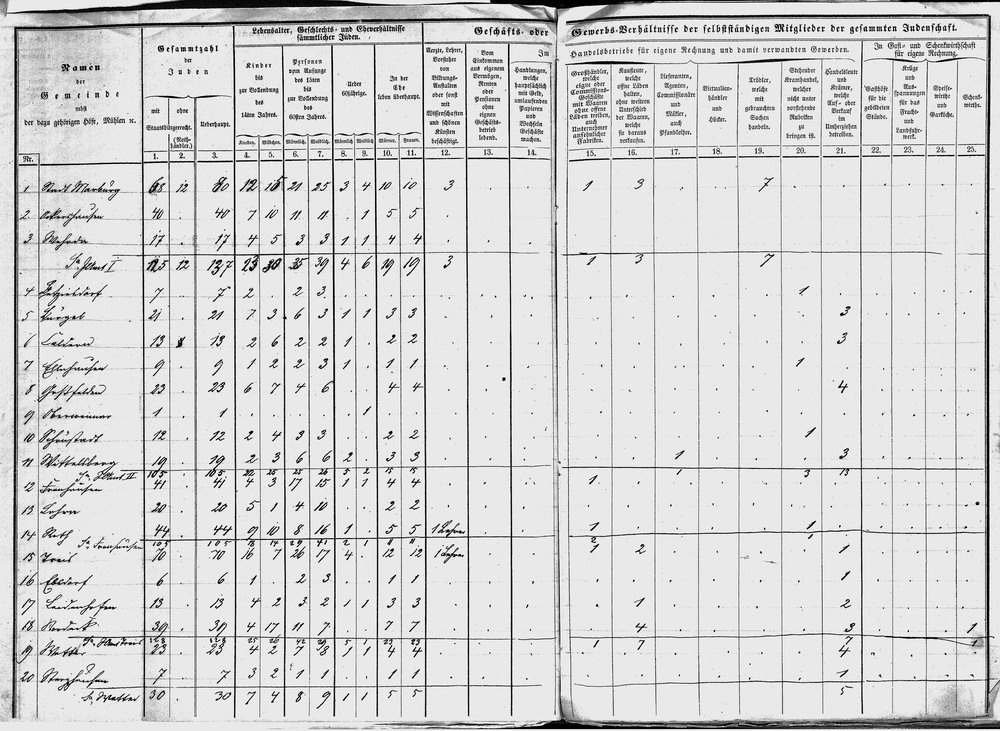 Lebensalter, Geschlechts- und Eheverhältnisse sämmtlicher Juden.
Geschäfts- oder Gewerbs-Verhältnisse der selbstständigen Mitglieder der gesammten Judenschaft.
Namen der Gemeinde nebst der dazu gehörigen Höfe, Mühlen ꝛc.
Gesammtzahl der Juden
mit Staatsbürgerrecht.
ohne (Nothhändler.)
Ueberhaupt.
Kinder bis zur Vollendung des 14ten Jahres.
Personen vom Anfange des 15ten bis zur Vollendung des 60sten Jahres.
Ueber 60jährige.
In der Ehe leben überhaupt.
Knaben. Mädchen. Männlich Weiblich Männlich Weiblich Männer. Frauen.
Aerzte, Lehrer, Vorsteher von Bildungs-Anstalten oder sonst mit Wissenschaften und schönen Künsten beschäftigt.
Vom Einkommen aus eigenem Vermögen, Renten oder Pensionen ohne eignen Geschäftsbetrieb lebend.
Im Handelsbetriebe für eigene Rechnung und damit verwandten Gewerben.
Handlungen, welche hauptsächlich mit Geld, umlaufenden Papieren und Wechseln Geschäfte machen.
Großhändler, welche eigne oder Commissions-Geschäfte mit Waaren ohne offene Läden treiben, auch Unternehmer ansehnlicher Fabriken.
Kaufleute, welche offne Läden halten, ohne weitern Unterschied der Waaren, welche sie daraus verkaufen.
Lieferanten, Agenten, Commissionäre und Mäkler, auch Pfandleiher.
Victualienhändler und Höcker.
Trödler, welche mit gebrauchten Sachen handeln.
Stehender Kramhandel, welcher nicht unter vorstehende Rubriken zu bringen ist.
Handelsleute und Krämer, welche Auf- oder Verkauf im Umherziehen betreiben.
In Gast- und Schenkwirthschaft für eigene Rechnung.
Gasthöfe für die gebildeten Stände.
Krüge und Ausspannungen für das Fracht- und Landfuhrwerk.
Speisewirthe und Garköche.
Schenkwirthe.
Nr. 1. 2. 3. 4. 5. 6. 7. 8. 9. 10. 11. 12. 13. 14. 15. 16. 17. 18. 19. 20. 21. 22. 23. 24. 25.
1 Stadt Marburg 68 12 80 12 15 21 25 3 4 10 10 3 1 3 7
2 Ockershausen 40 40 7 10 11 11 1 5 5
3 Wehrda 17 17 4 5 3 3 1 1 4 4
125 12 137 23 30 35 39 4 6 19 19 3 1 3 7
4 7 7 2 2 3 1
5 Bürgel 21 21 7 3 6 3 1 1 3 3 3
6 Caldern 13 13 2 6 2 2 1 2 2 3
7 Elnhausen 9 9 1 2 2 3 1 1 1 1
8 Goßfelden 23 23 6 7 4 6 4 4 4
9 Oberweimar 1 1 1
10 Schönstadt 12 12 2 4 3 3 2 2 1
11 Wittelsberg 19 19 2 3 6 6 2 3 3 1 3
105 105 22 25 25 26 5 2 15 15 1 3 13
12 Fronhausen 41 41 4 3 17 15 1 1 4 4 1
13 Lohra 20 20 5 1 4 10 2 2
14 Roth 44 44 9 10 8 16 1 5 5 1 Lehrer 1 1
Sa. Fronhausen 105 105 18 14 29 41 2 1 11 11 2 1
15 Treis 70 70 16 7 26 17 4 12 12 1 Lehrer 1 2 1
16 Ebsdorf 6 6 1 2 3 1 1 1
17 Leidenhofen 13 13 4 2 3 2 1 1 3 3 1 2
18 Nordeck 39 39 4 17 11 7 7 7 4 3 1
128 128 25 26 42 29 5 1 23 23 1 7 7 1
19 Wetter 23 23 4 2 7 8 1 1 4 4 4
20 Sterzhausen 7 7 3 2 1 1 1 1 1
Sa. Wetter 30 30 7 4 8 9 1 1 5 5 5